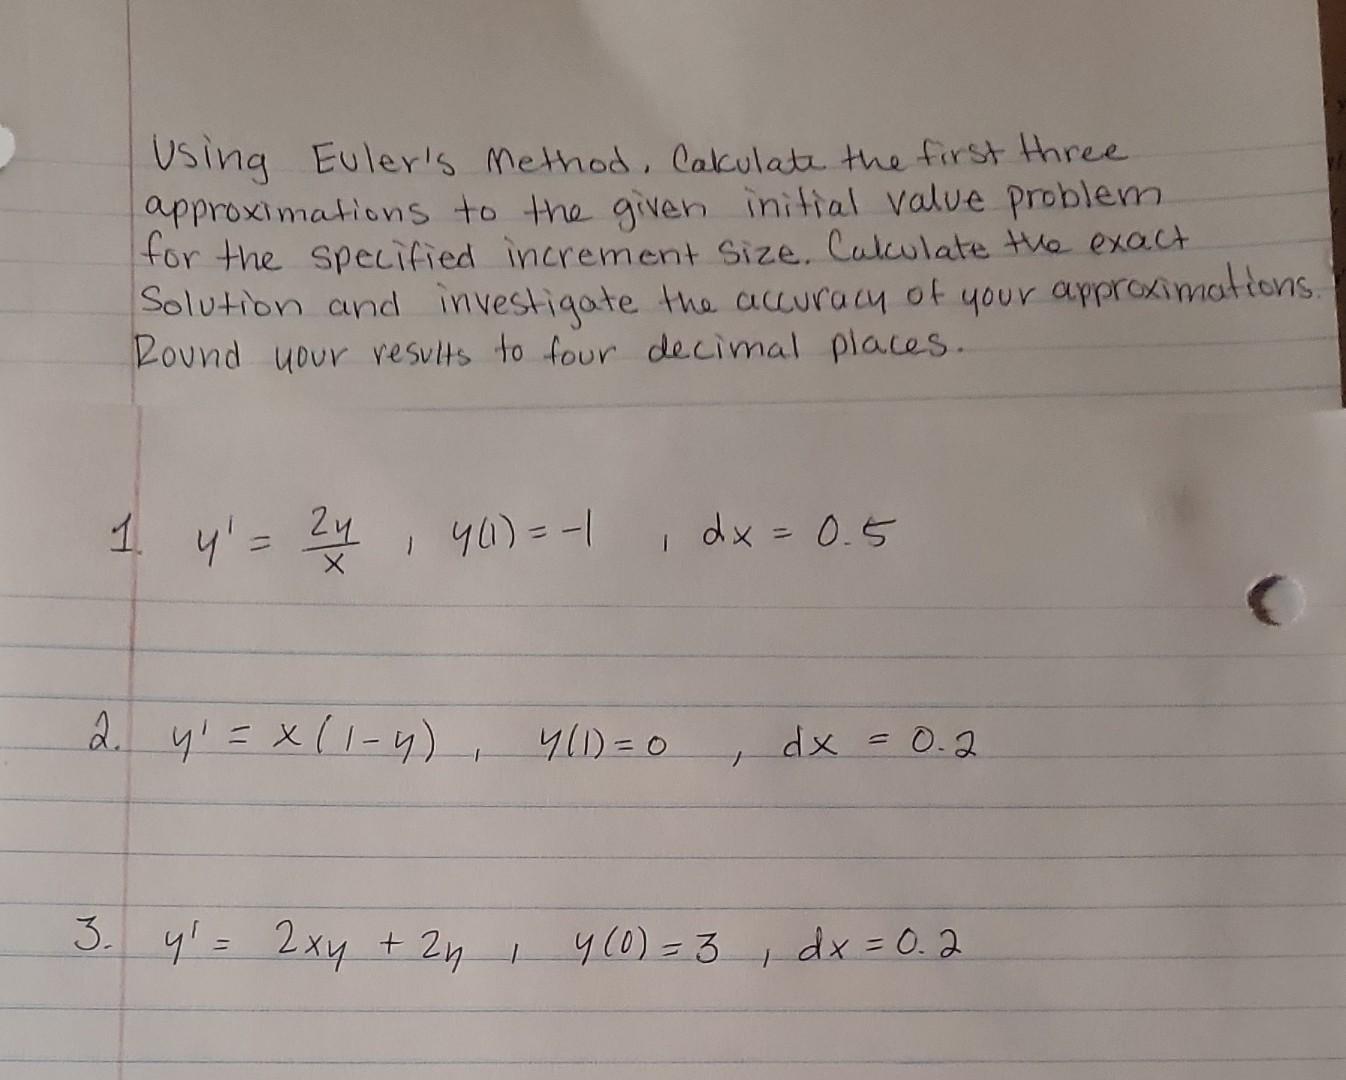 Using Euler's Method. Calculate the first three
approximations to the given initial value problem
for the specified increment size. Calculate the exact
Solution and investigate the accuracy of your approximations.
Round your results to four decimal places.
1. y' = 2y/x , y(1) = -1 , dx = 0.5
2. y' = x(1-y) , y(1) = 0 , dx = 0.2
3. y' = 2xy + 2y , y(0) = 3 , dx = 0.2